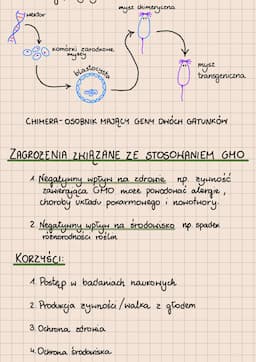 mysz chimeryczna
wektor
komórki zarodkowe
myszy
blastocysta
mysz
transgeniczna
CHIMERA - OSOBNIK MAJĄCY GENY DWÓCH GATUNKÓW
ZAGROŻENIA ZWIĄZANE ZE STOSOWANIEM GMO
1. Negatywny wpływ na zdrowie np. żywność
zawierająca GMO może powodować alergie,
choroby układu pokarmowego i nowotwory.
2. Negatywny wpływ na środowisko np. spadek
różnorodności roślin
KORZYŚCI:
1. Postęp w badaniach naukowych
2. Produkcja żywności / walka z głodem
3. Ochrona zdrowia
4. Ochrona środowiska